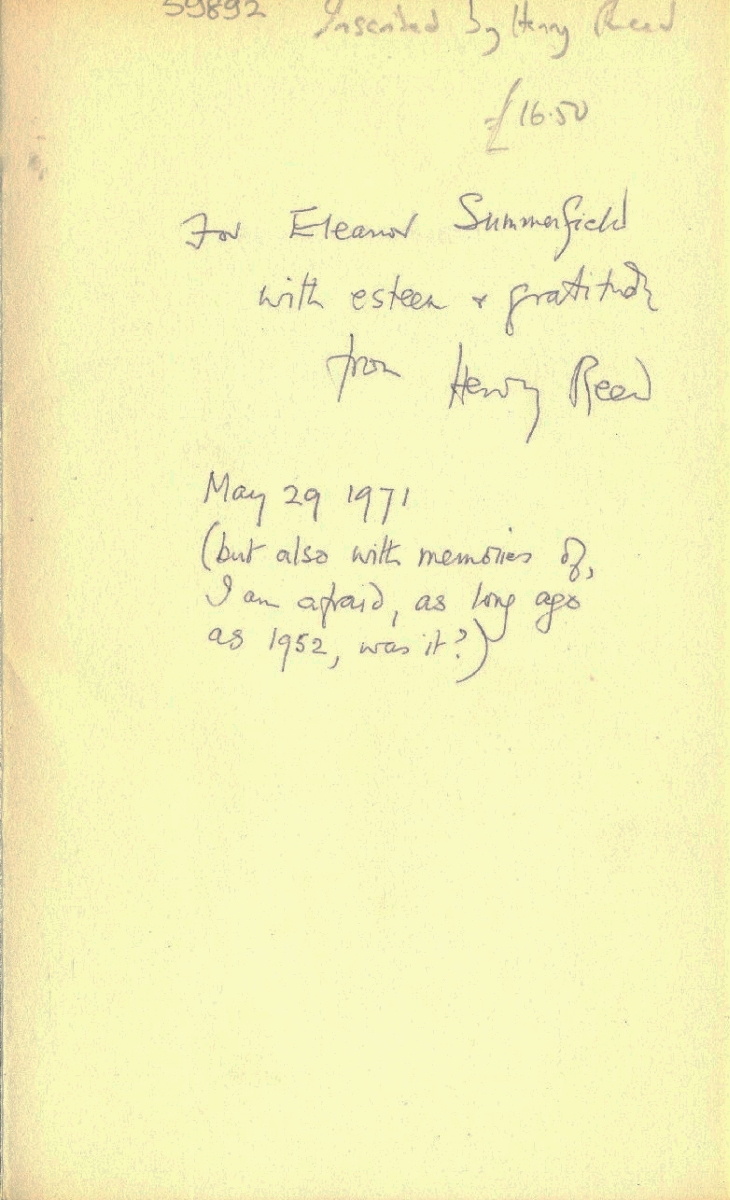 59892 Inscribed by Henry Reed
£16.50
For Eleanor Summerfield
with esteem & gratitude
from Henry Reed
May 29 1971
(but also with memories of,
I am afraid, as long ago
as 1952, was it?)